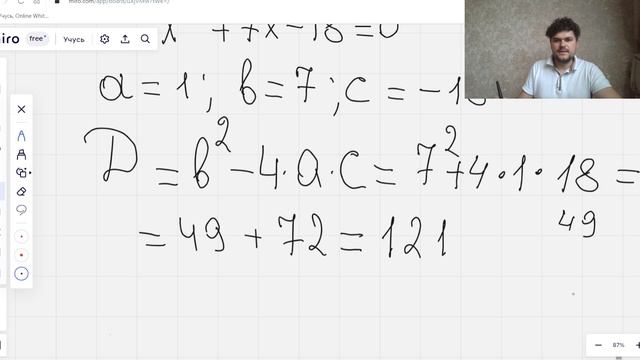 miro.com/app/board/
Учусь, Online Whit...
miro free Учусь
x + 7x - 18 = 0
a = 1 ; b = 7 ; c = -18
D = b² - 4·a·c = 7² + 4·1·18 =
= 49 + 72 = 121
49
87%